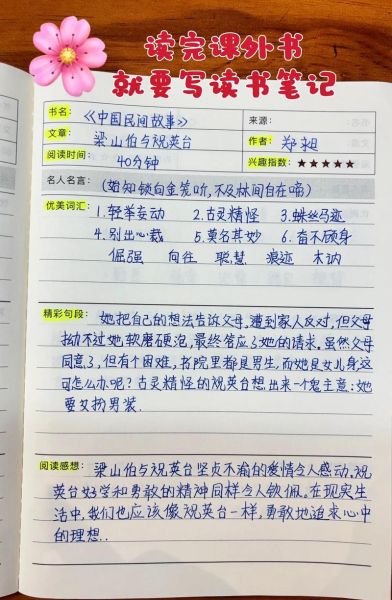 读完课外书
就要写读书笔记
书名: 《中国民间故事》 来源:
文章: 梁山伯与祝英台 作者: 郑昶
阅读时间: 40分钟 兴趣指数: ★★★★★
名人名言: (始知锁向金笼听,不及林间自在啼)
优美词汇: 1.轻举妄动 2.古灵精怪 3.蛛丝马迹
4.别出心裁 5.莫名其妙 6.奋不顾身
倔强 向往 聪慧 浪迹 木讷
精彩句段: 她把自己的想法告诉父母,遭到家人反对,但父母
拗不过她软磨硬泡,最终答应了她的请求。虽然父母
同意了,但有个困难,书院里都是男生,而她是女儿身这
可怎么办呢?古灵精怪的祝英台想出来一个鬼主意:她
要女扮男装.
阅读感想: 梁山伯与祝英台坚贞不渝的爱情令人感动,祝
英台好学和勇敢的精神同样令人钦佩。在现实生
活中,我们也应该像祝英台一样,勇敢地追求心中
的理想..